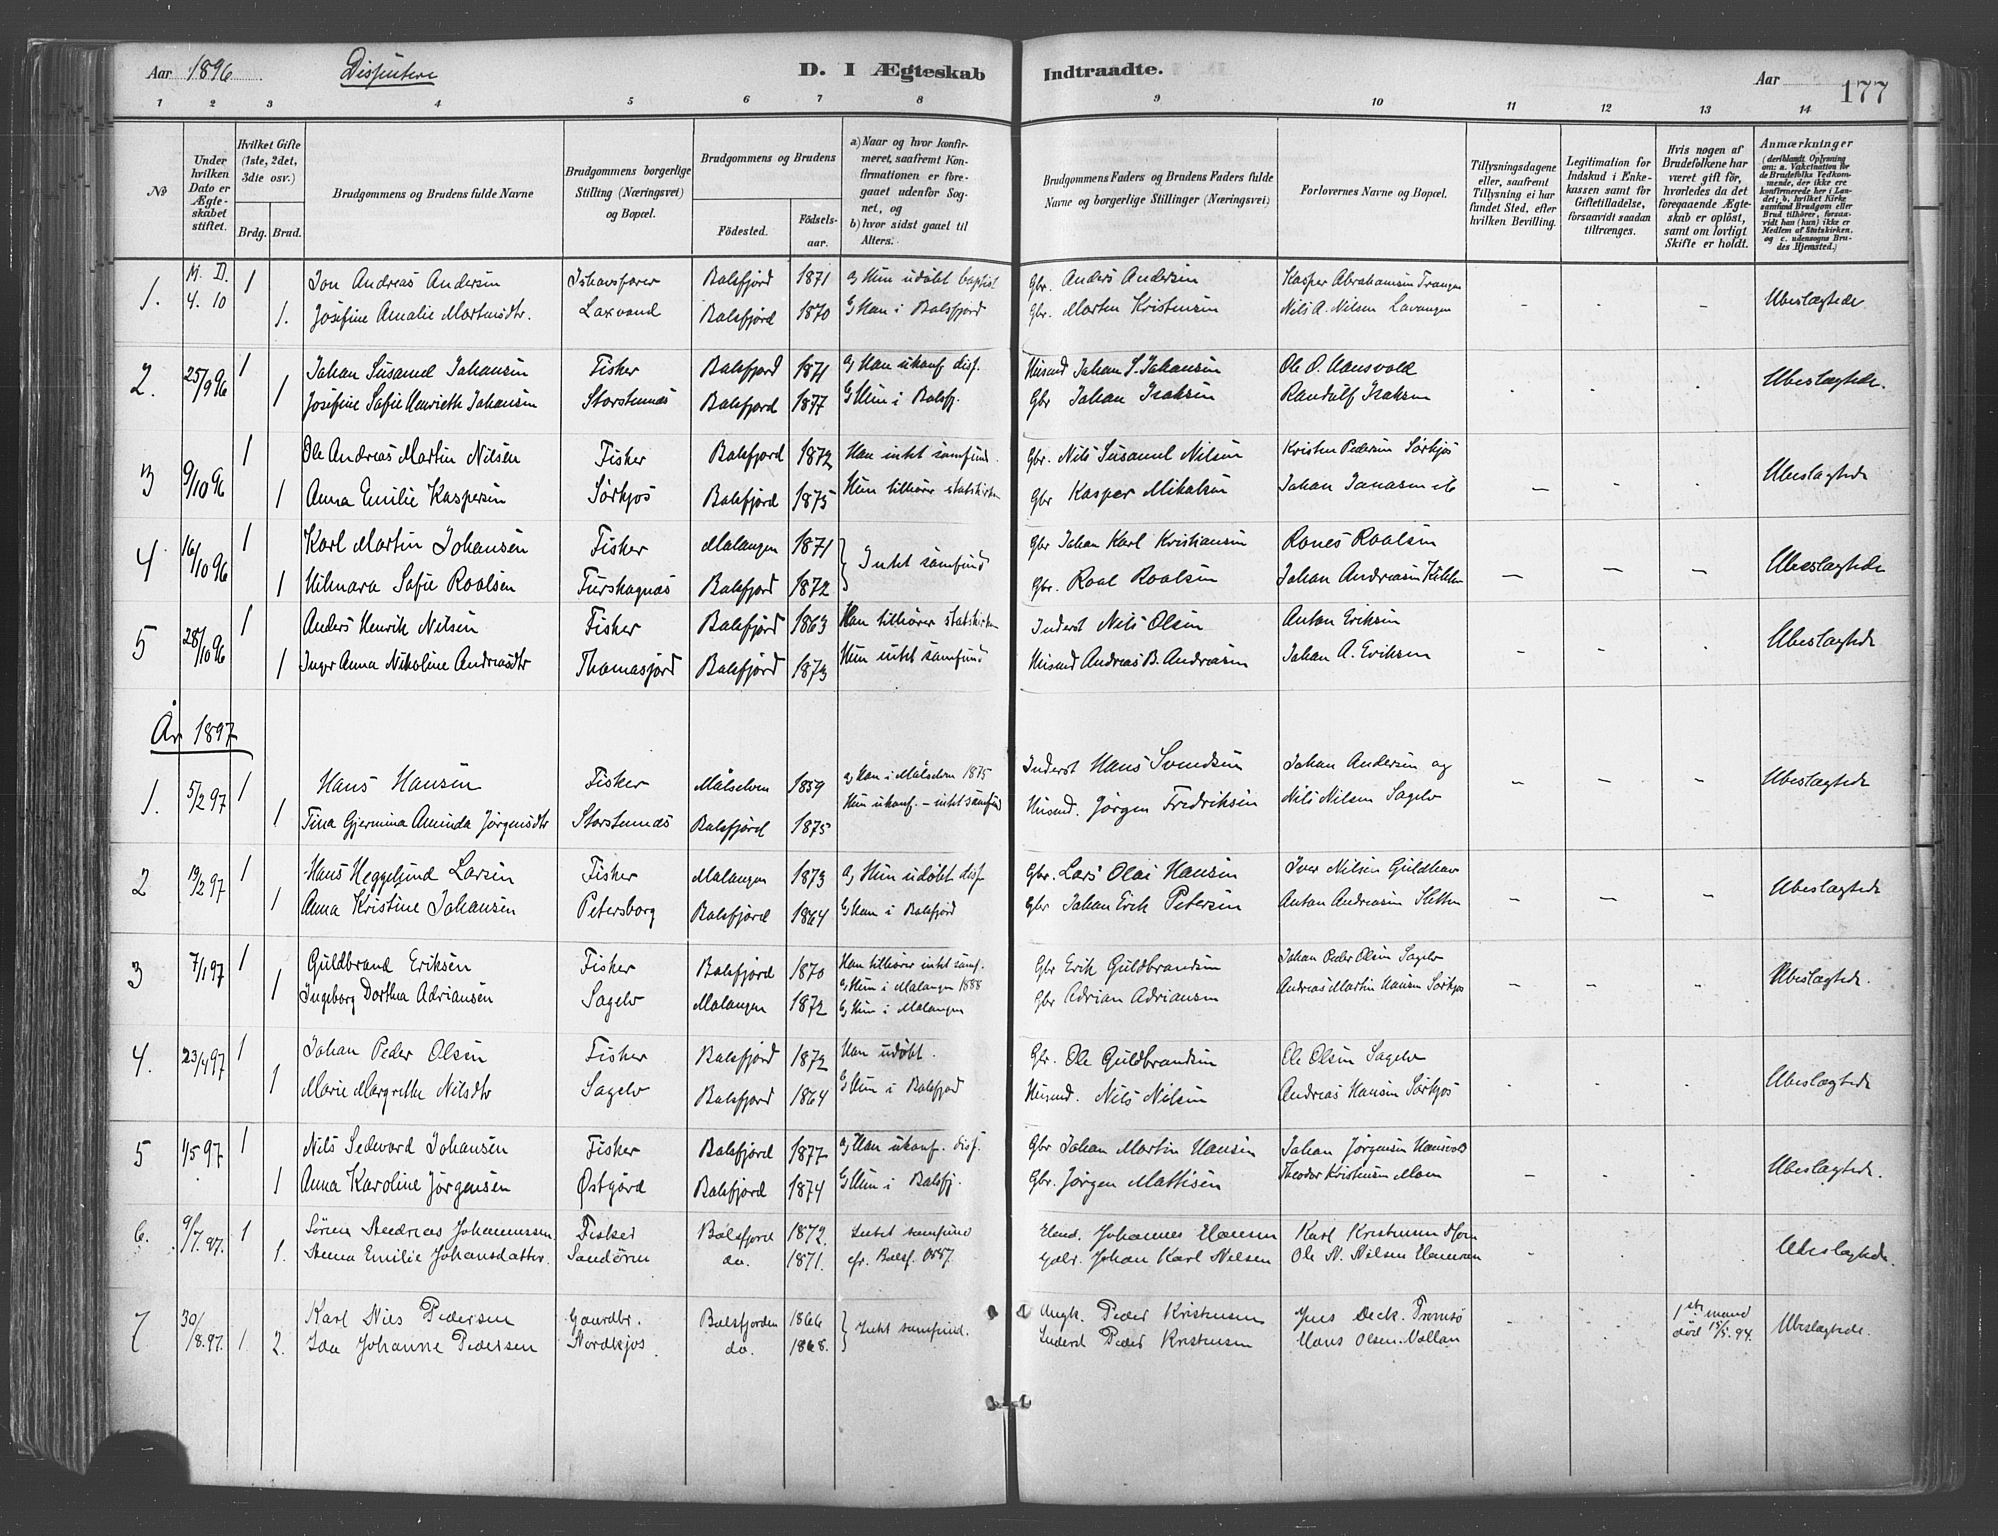 Aar 1896 Disentere D. I Ægteskab Indtraadte. Aar 177
1 2 3 4 5 6 7 8 9 10 11 12 13 14
No
Under hvilken Dato er Ægteskabet stiftet.
Hvilket Gifte (1ste, 2det, 3die osv.)
Brdg. Brud.
Brudgommens og Brudens fulde Navne
Brudgommens borgerlige Stilling (Næringsvei) og Bopæl.
Brudgommens og Brudens
Fødested. Fødselsaar.
a) Naar og hvor konfirmeret, saafremt Konfirmationen er foregaaet udenfor Sognet, og
b) hvor sidst gaaet til Alters.
Brudgommens Faders og Brudens Faders fulde Navne og borgerlige Stillinger (Næringsvei)
Forlovernes Navne og Bopæl.
Tillysningsdagene eller, saafremt Tillysning ei har fundet Sted, efter hvilken Bevilling.
Legitimation for Indskud i Enkekassen samt for Giftetilladelse, forsaavidt saadan tiltrænges.
Hvis nogen af Brudefolkene har været gift før, hvorledes da det foregaaende Ægteskab er opløst, samt om lovligt Skifte er holdt.
Anmærkninger
(deriblandt Oplysning om: a. Vakcination for de Brudefolks Vedkommende, der ikke ere konfirmerede her i Landet; b. hvilket Kirkesamfund Brudgom eller Brud tilhører, forsaavidt han (hun) ikke er Medlem af Statskirken, og c. udensogns Brudes Hjemsted.)
1. M. D. 1 Jon Andreas Andersen Ishavsfarer Balsfjord 1871 a) Hun udøbt baptist Gbr. Anders Andersen Kasper Abrahamsen
4. 10 1. Josefine Amalie Martinsdtr. Laxvand Balsfjord 1870 b) Han i Balsfjord Gbr. Morten Kristensen Nils A. Nilsen Lavangen – – – Ubeslægtede
2. 25/9 96 1 Johan Susamel Johansen Fisker Balsfjord 1871 a) Han ukonf. dis. Husmd Johan S. Johansen Ole O. Hansvold
1 Josefine Sofie Henriette Johansen Storstennæs Balsfjord 1877 b) Hun i Balsfj. Gbr Johan Isaksen Randulf Isaksen Ubeslægtede.
3 9/10 96 1 Ole Andreas Martin Nilsen Fisker Balsfjord 1872 Han intet samfund. Gbr. Nils Susamel Nilsen Kristen Pedersen Sørkjos
1 Anna Emilie Kaspersen Sørkjos Balsfjord 1875 Hun tilhører statskirken Gbr Kasper Mikalsen Johan Jonasen Ubeslægtede
4 16/10 96 1 Karl Martin Johansen Fisker Malangen 1871 } Intet samfund Gbr Johan Karl Kristiansen Roald Roalsen
1 Hilmara Sofie Roalsen Turskagnæs Balsfjord 1872 Gbr. Roal Roalsen Johan Andreasen – – – Ubeslægtede
5 28/10 96 1 Anders Henrik Nilsen Fisker Balsfjord 1863 Han tilhører statskirken Inderst Nils Olsen Anton Eriksen
1 Inger Anna Nikoline Andreasdtr Thomasjord Balsfjord 1873 Hun intet samfund Husmd Andreas B. Andreasen Johan A. Eriksen Ubeslægtede
År 1897
1. 5/2 97 1 Hans Hansen Fisker Målselven 1859 a) han i Målselven 1875 Inderst Hans Svendsen Johan Andersen og
1 Tina Gjermina Aminda Jørgensdtr Storstennæs Balsfjord 1875 Hun ukonf. – intet samfund Husmd. Jørgen Fredriksen Nils Nilsen Sagelv – – – Ubeslægtede
2 19/2 97 1 Hans Heggelund Larsen Fisker Malangen 1873 a) Hun udøbt dis. Gbr. Lars Olai Hansen Iver Nilsen Guldhav
1 Anna Kristine Johansen Petersborg Balsfjord 1864 b) Han i Balsfjord Gbr Johan Erik Petersen Anton Andreasen Sletten – – – Ubeslægtede
3 7/1 97 1 Guldbrand Eriksen Fisker Balsfjord 1870 Han tilhører intet samf. Gbr Erik Guldbrandsen Johan Peder Olsen Sagelv
1 Ingeborg Dorthea Adriansen Sagelv Malangen 1872 a) Hun i Malangen 1888 Gbr Adrian Adriansen Andreas Martin Hansen Sørkjos Ubeslægtede.
b) Hun i Malangen
4. 23/4 97 1 Johan Peder Olsen Fisker Balsfjord 1872 Han udøbt. Gbr. Ole Guldbrandsen Ole Olsen Sagelv
1 Marie Margrethe Nilsdtr Sagelv Balsfjord 1864 b) Hun i Balsfjord Husmd. Nils Nilsen Andreas Hansen Sørkjos Ubeslægtede
5 1/5 97 1 Nils Sedvard Johansen Fisker Balsfjord 1877 a) Han ukonf. dis. Gbr Johan Martin Hansen Johan Jørgensen Hansvold
1 Anna Karoline Jørgensen Østgård Balsfjord 1874 b) Hun i Balsfj. Gbr. Jørgen Mattisen Theodor Kristensen Moen Ubeslægtede.
6. 9/7. 97. 1 Søren Andreas Johannessen Fisker Balsfjord 1872. Intet samfund Johannes Hansen Karl Kristensen
1. Anna Emilie Johansdatter Sandøren do. 1871. cfr. Balsf. Johan Karl Nilsen Ole N. Nilsen Ubeslægtede.
7 30/8. 97. 1. Karl Nils Pedersen Gaardbr. Balsfjorden 1866 } Intet samfund. Peder Kristensen Jens Deck. Tromsø 1ste mand
2. Ida Johanne Pedersen Nordkjos do. 1868. Inderst Peder Kristensen Hans Olsen Vollan død 15/5. 94. Ubeslægtede.